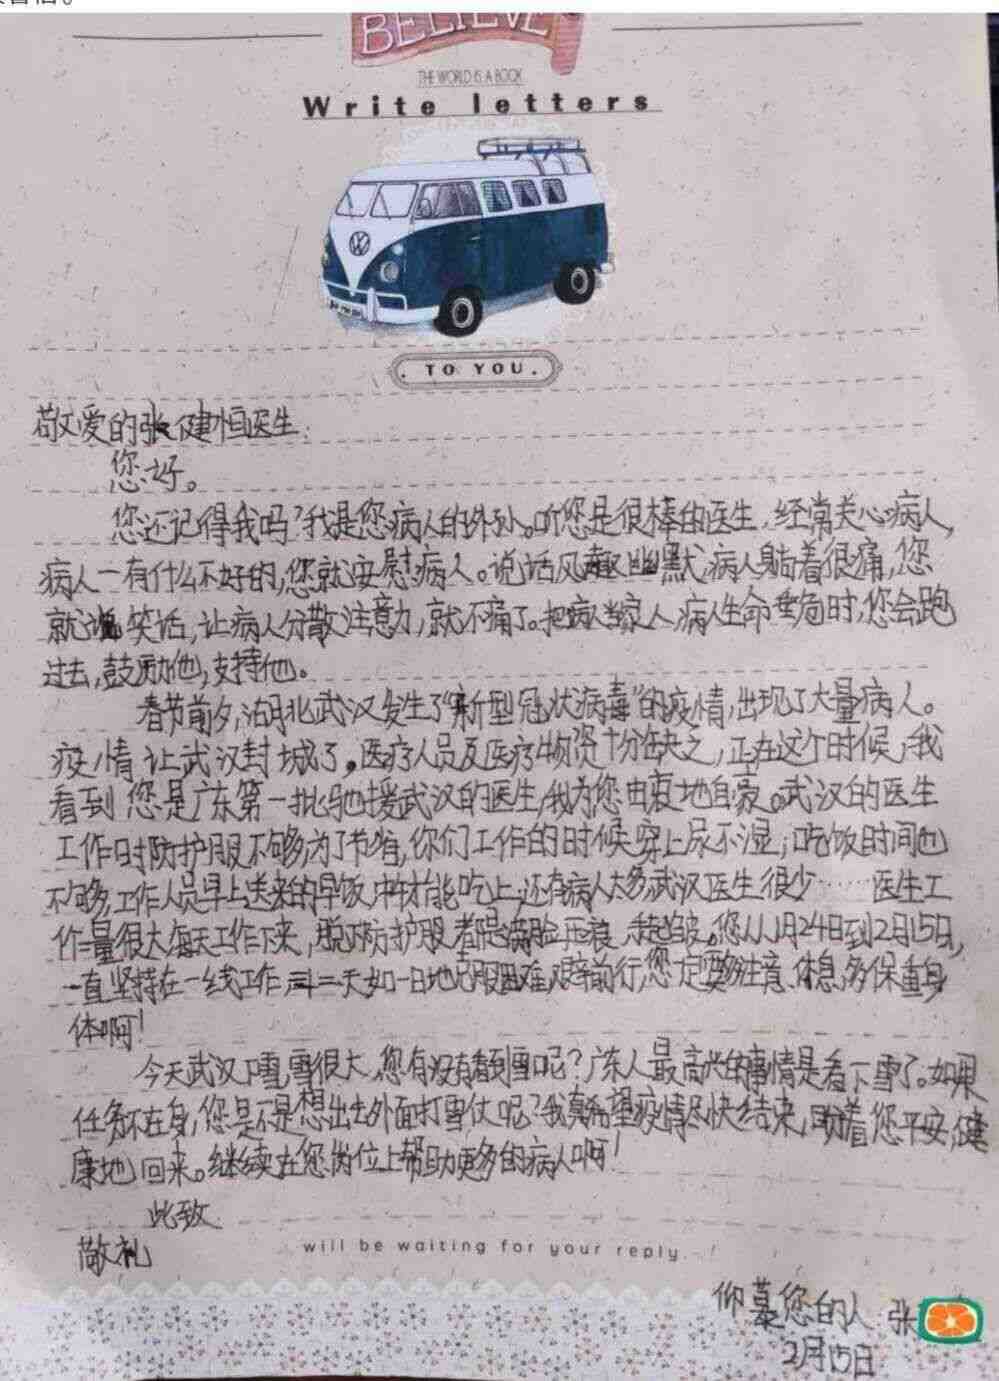 BELIEVE
THE WORLD IS A BOOK
Write letters
TO YOU.
敬爱的张健恒医生:
您好。
您还记得我吗?我是您病人的外孙。听您是很棒的医生,经常关心病人,
病人一有什么不好的,您就安慰病人。说话风趣幽默,病人躺着很痛,您
就说笑话,让病人分散注意力,就不痛了。把病人当家人,病人生命垂危时,您会跑
过去,鼓励他,支持他。
春节前夕,湖北武汉发生了“新型冠状病毒”的疫情,出现了大量病人。
疫情让武汉封城了。医疗人员及医疗物资十分缺乏,正在这个时候,我
看到您是广东第一批驰援武汉的医生,我为您由衷地自豪。武汉的医生
工作时防护服不够,为了节省,你们工作的时候穿上尿不湿;吃饭时间也
不够,工作人员早上送来的早饭,中午才能吃上;还有病人太多,武汉医生很少……医生工
作量很大,每天工作下来,脱下防护服,都是满脸压痕
您从1月24日到2月15日,
一直坚持在一线工作,二十三天如一日地克服困难,艰辛前行,您一定要多注意休息,多保重身
体啊!
今天武汉下雪,雪很大,您有没有看到雪呢?广东人最高兴的事情是看下雪了。如果
任务不在身,您是不是想出去外面打雪仗呢?我真希望疫情尽快结束,盼着您平安,健
康地回来。继续在您岗位上帮助更多的病人啊!
此致
敬礼
will be waiting for your reply.
仰慕您的人 张
2月15日